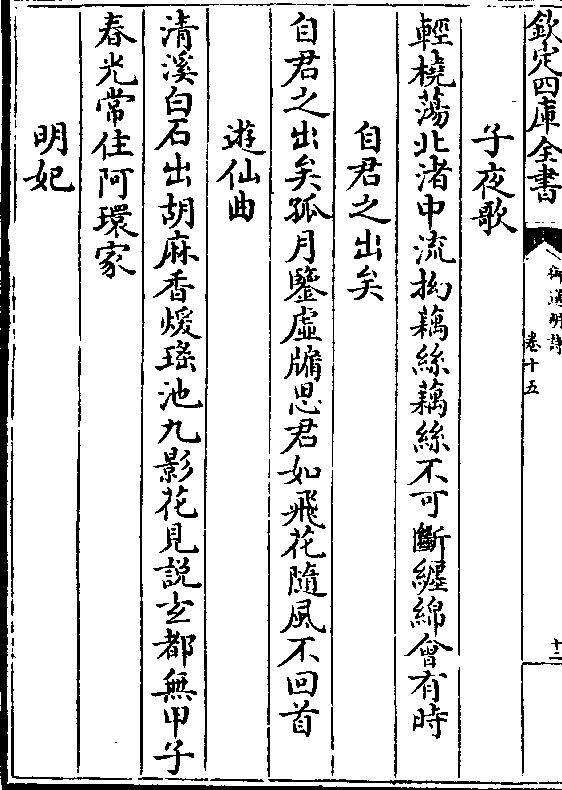 欽定四庫全書
御選明詩
卷十五
十二
子夜歌
輕橈蕩北渚中流拗藕絲藕絲不可斷纒綿會有時
自君之出矣
自君之出矣孤月鑒虛牖思君如飛花隨風不回首
遊仙曲
清溪白石出胡麻香煖瑤池九影花見說玄都無甲子
春光常住阿環家
明妃